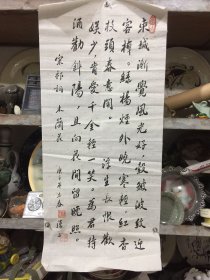 東城漸覺風光好，縠皺波紋迎
客棹。綠楊煙外曉寒輕，紅杏
枝頭春意鬧。浮生長恨歡
娛少，肯愛千金輕一笑。為君持
酒勸斜陽，且向花間留晚照。
宋祁詞 木蘭花